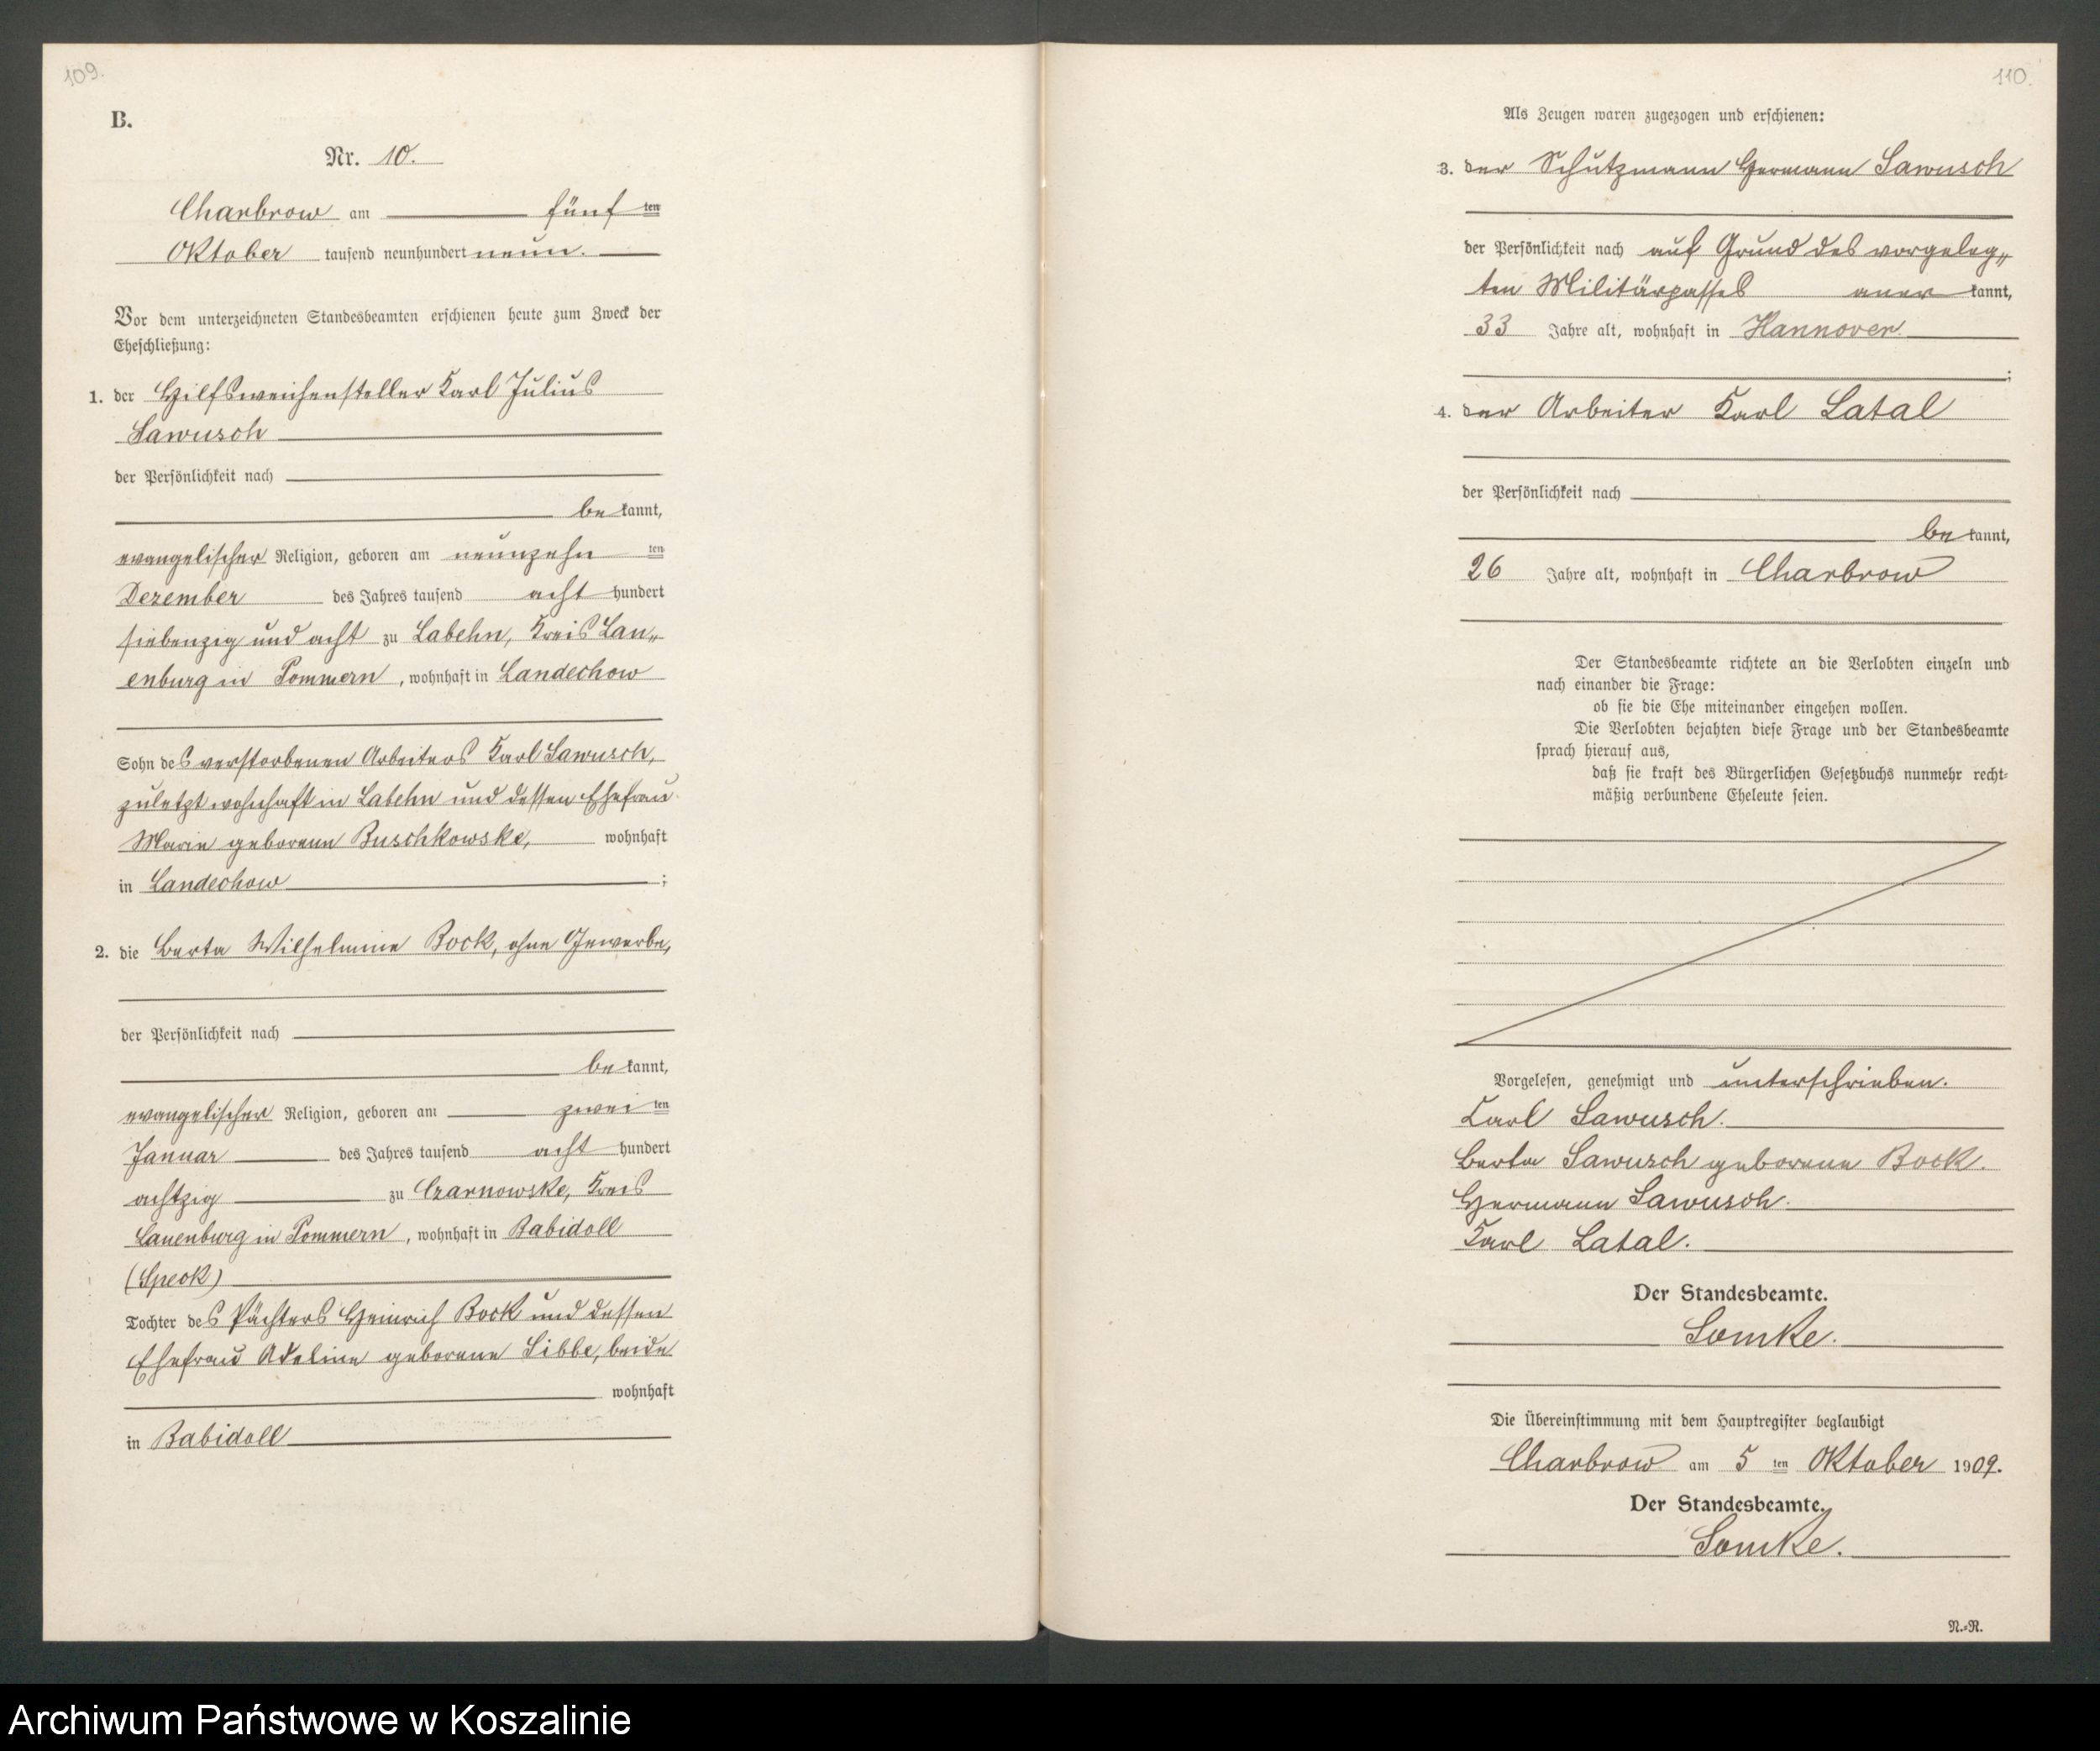 109.
B.
Nr. 10.
Charbrow am fünf ten
Oktober tausend neunhundert neun.
Vor dem unterzeichneten Standesbeamten erschienen heute zum Zweck der
Eheschließung:
1. der Hilfsweichensteller Karl Julius
Sawusch
der Persönlichkeit nach
be kannt,
evangelischer Religion, geboren am neunzehn ten
Dezember des Jahres tausend acht hundert
siebenzig und acht zu Labehn, Kreis Lau„
enburg in Pommern, wohnhaft in Landechow
Sohn des verstorbenen Arbeiters Karl Sawusch,
zuletzt wohnhaft in Labehn und dessen Ehefrau
Marie geborene Buschkowske, wohnhaft
in Landechow ;
2. die Berta Wilhelmine Bock, ohne Gewerbe,
der Persönlichkeit nach
be kannt,
evangelischer Religion, geboren am zwei ten
Januar des Jahres tausend acht hundert
achtzig zu Czarnowske, Kreis
Lauenburg in Pommern, wohnhaft in Babidoll
(Speck)
Tochter des Pächters Heinrich Bock und dessen
Ehefrau Adeline geborene Libbe, beide
wohnhaft
in Babidoll
110.
Als Zeugen waren zugezogen und erschienen:
3. der Schutzmann Hermann Sawusch
der Persönlichkeit nach auf Grund des vorgeleg„
ten Militärpasses aner kannt,
33 Jahre alt, wohnhaft in Hannover.
;
4. der Arbeiter Karl Latal
der Persönlichkeit nach
be kannt,
26 Jahre alt, wohnhaft in Charbrow
Der Standesbeamte richtete an die Verlobten einzeln und
nach einander die Frage:
ob sie die Ehe miteinander eingehen wollen.
Die Verlobten bejahten diese Frage und der Standesbeamte
sprach hierauf aus,
daß sie kraft des Bürgerlichen Gesetzbuchs nunmehr recht-
mäßig verbundene Eheleute seien.
Vorgelesen, genehmigt und unterschrieben.
Karl Sawusch.
Berta Sawusch geborene Bock.
Hermann Sawusch.
Karl Latal.
Der Standesbeamte.
Lomke.
Die Übereinstimmung mit dem Hauptregister beglaubigt
Charbrow am 5 ten Oktober 1909.
Der Standesbeamte.
Lomke.
N.-R.
Archiwum Państwowe w Koszalinie